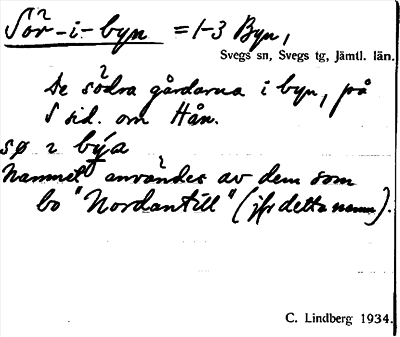 Sör-i-byn = 1-3 Byn,
Svegs sn, Svegs tg, Jämtl. län.
De södra gårdarna i byn, på
S sid. om Hån.
sø 2 býa
Namnet användes av dem som
bo "Nordantill" (jfr detta namn).
C. Lindberg 1934.